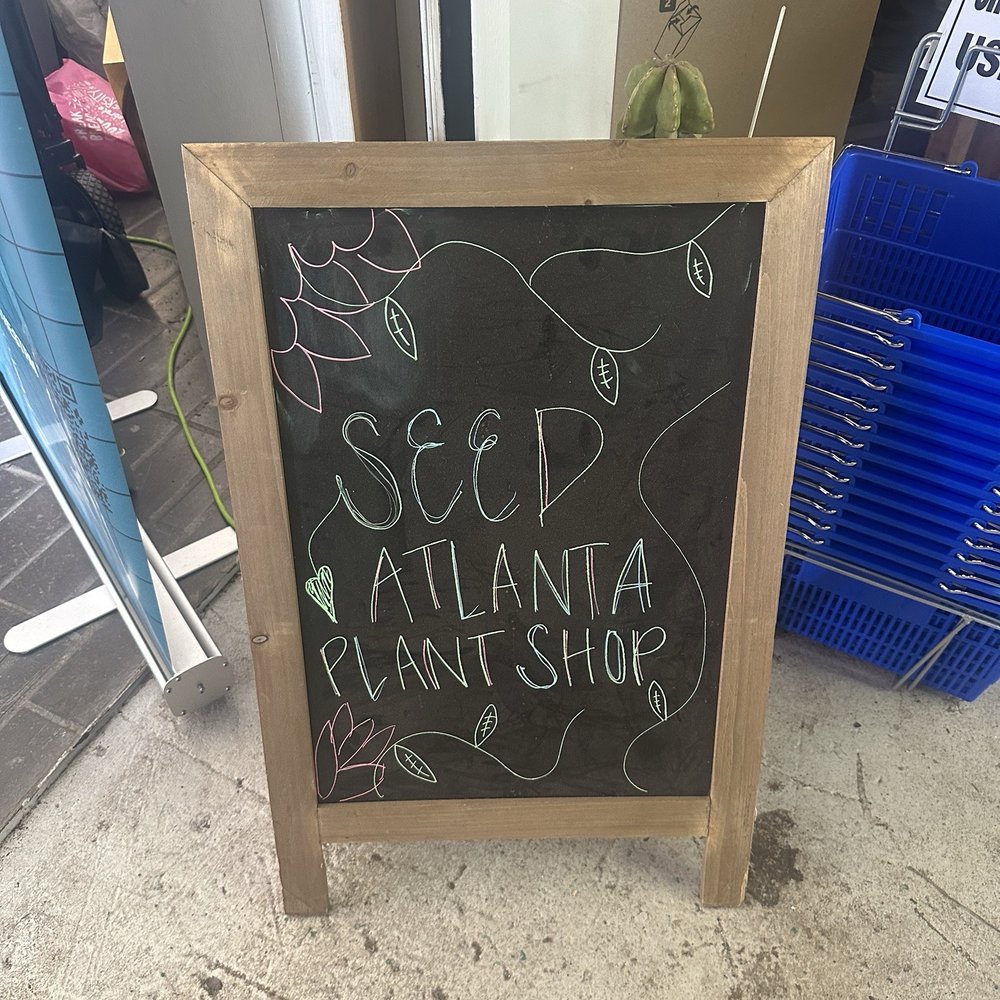 SEED
ATLANTA
PLANT SHOP